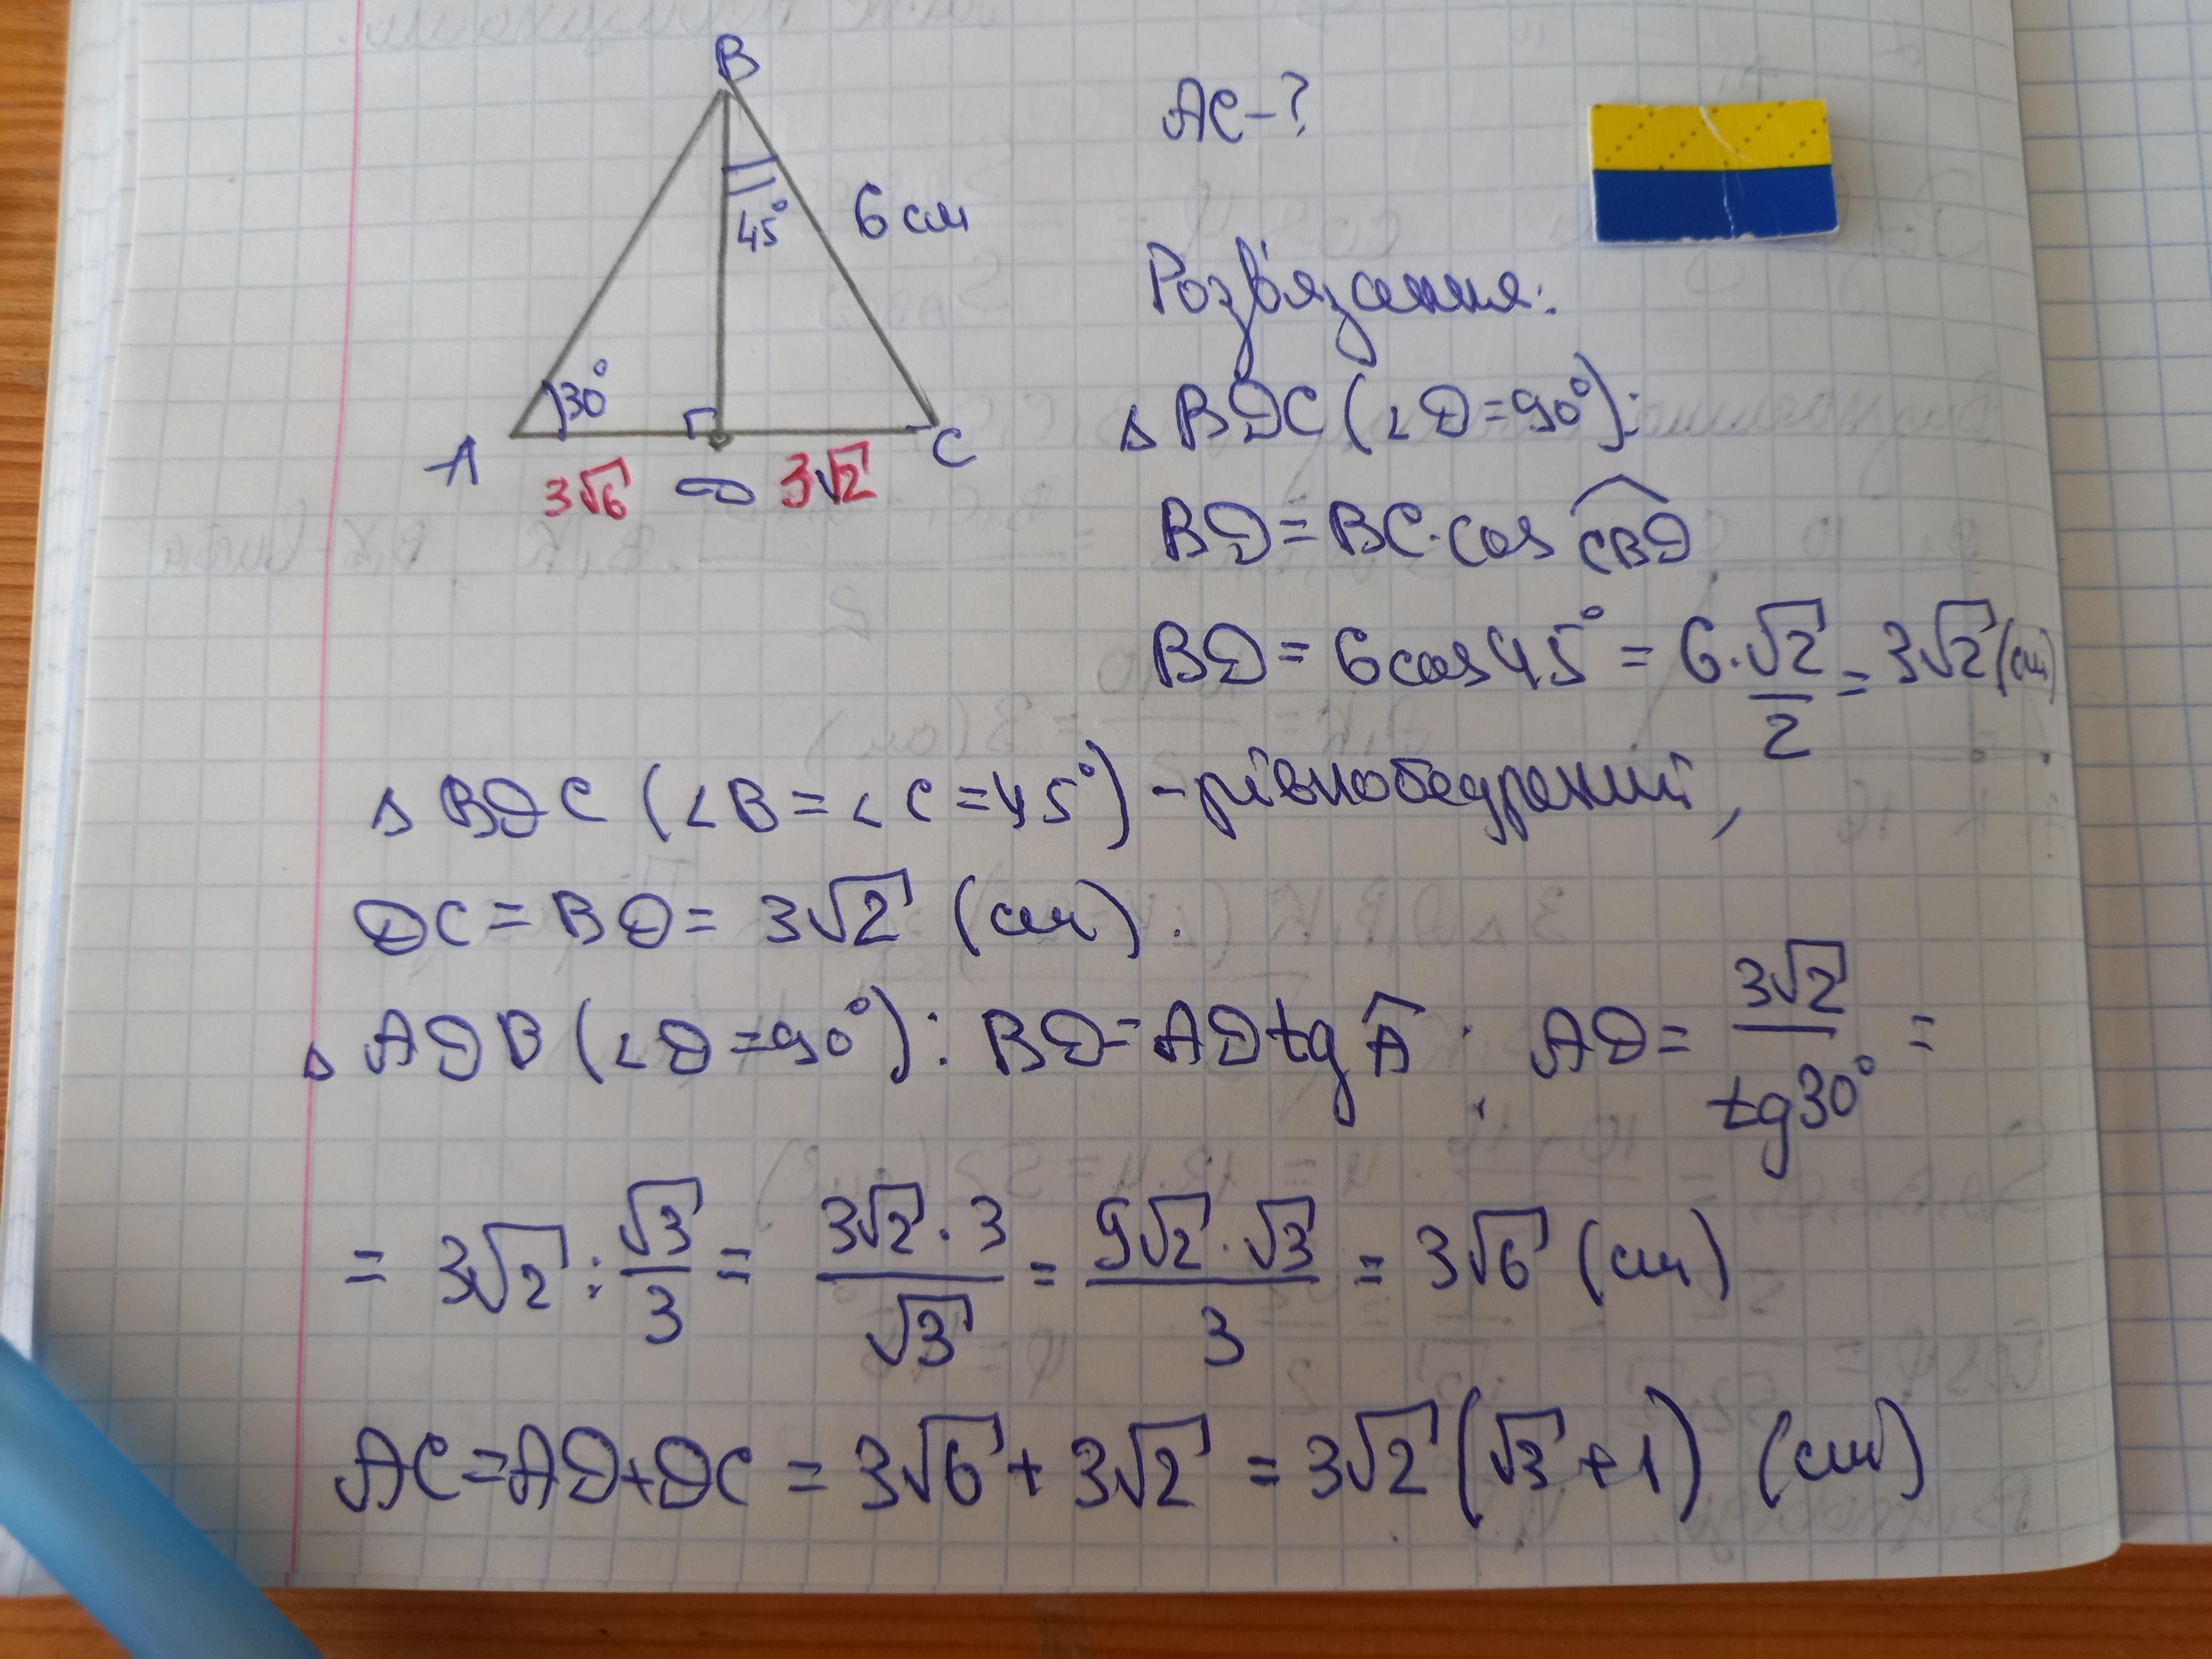 B
AC-?
45°
6 см
30°
A
C
3√6 D 3√2
Розв'язання:
△ BDC (∠D=90°):
BD=BC·cos CBD
BD = 6cos45° = 6·√2/2 = 3√2 (см)
△ BDC (∠B=∠C=45°) - рівнобедрений,
DC = BD = 3√2 (см).
△ ADB (∠D=90°): BD=ADtg A ; AD = 3√2/tg30° =
= 3√2 : √3/3 = 3√2·3/√3 = 9√2·√3/3 = 3√6 (см)
AC=AD+DC = 3√6 + 3√2 = 3√2(√3+1) (см)